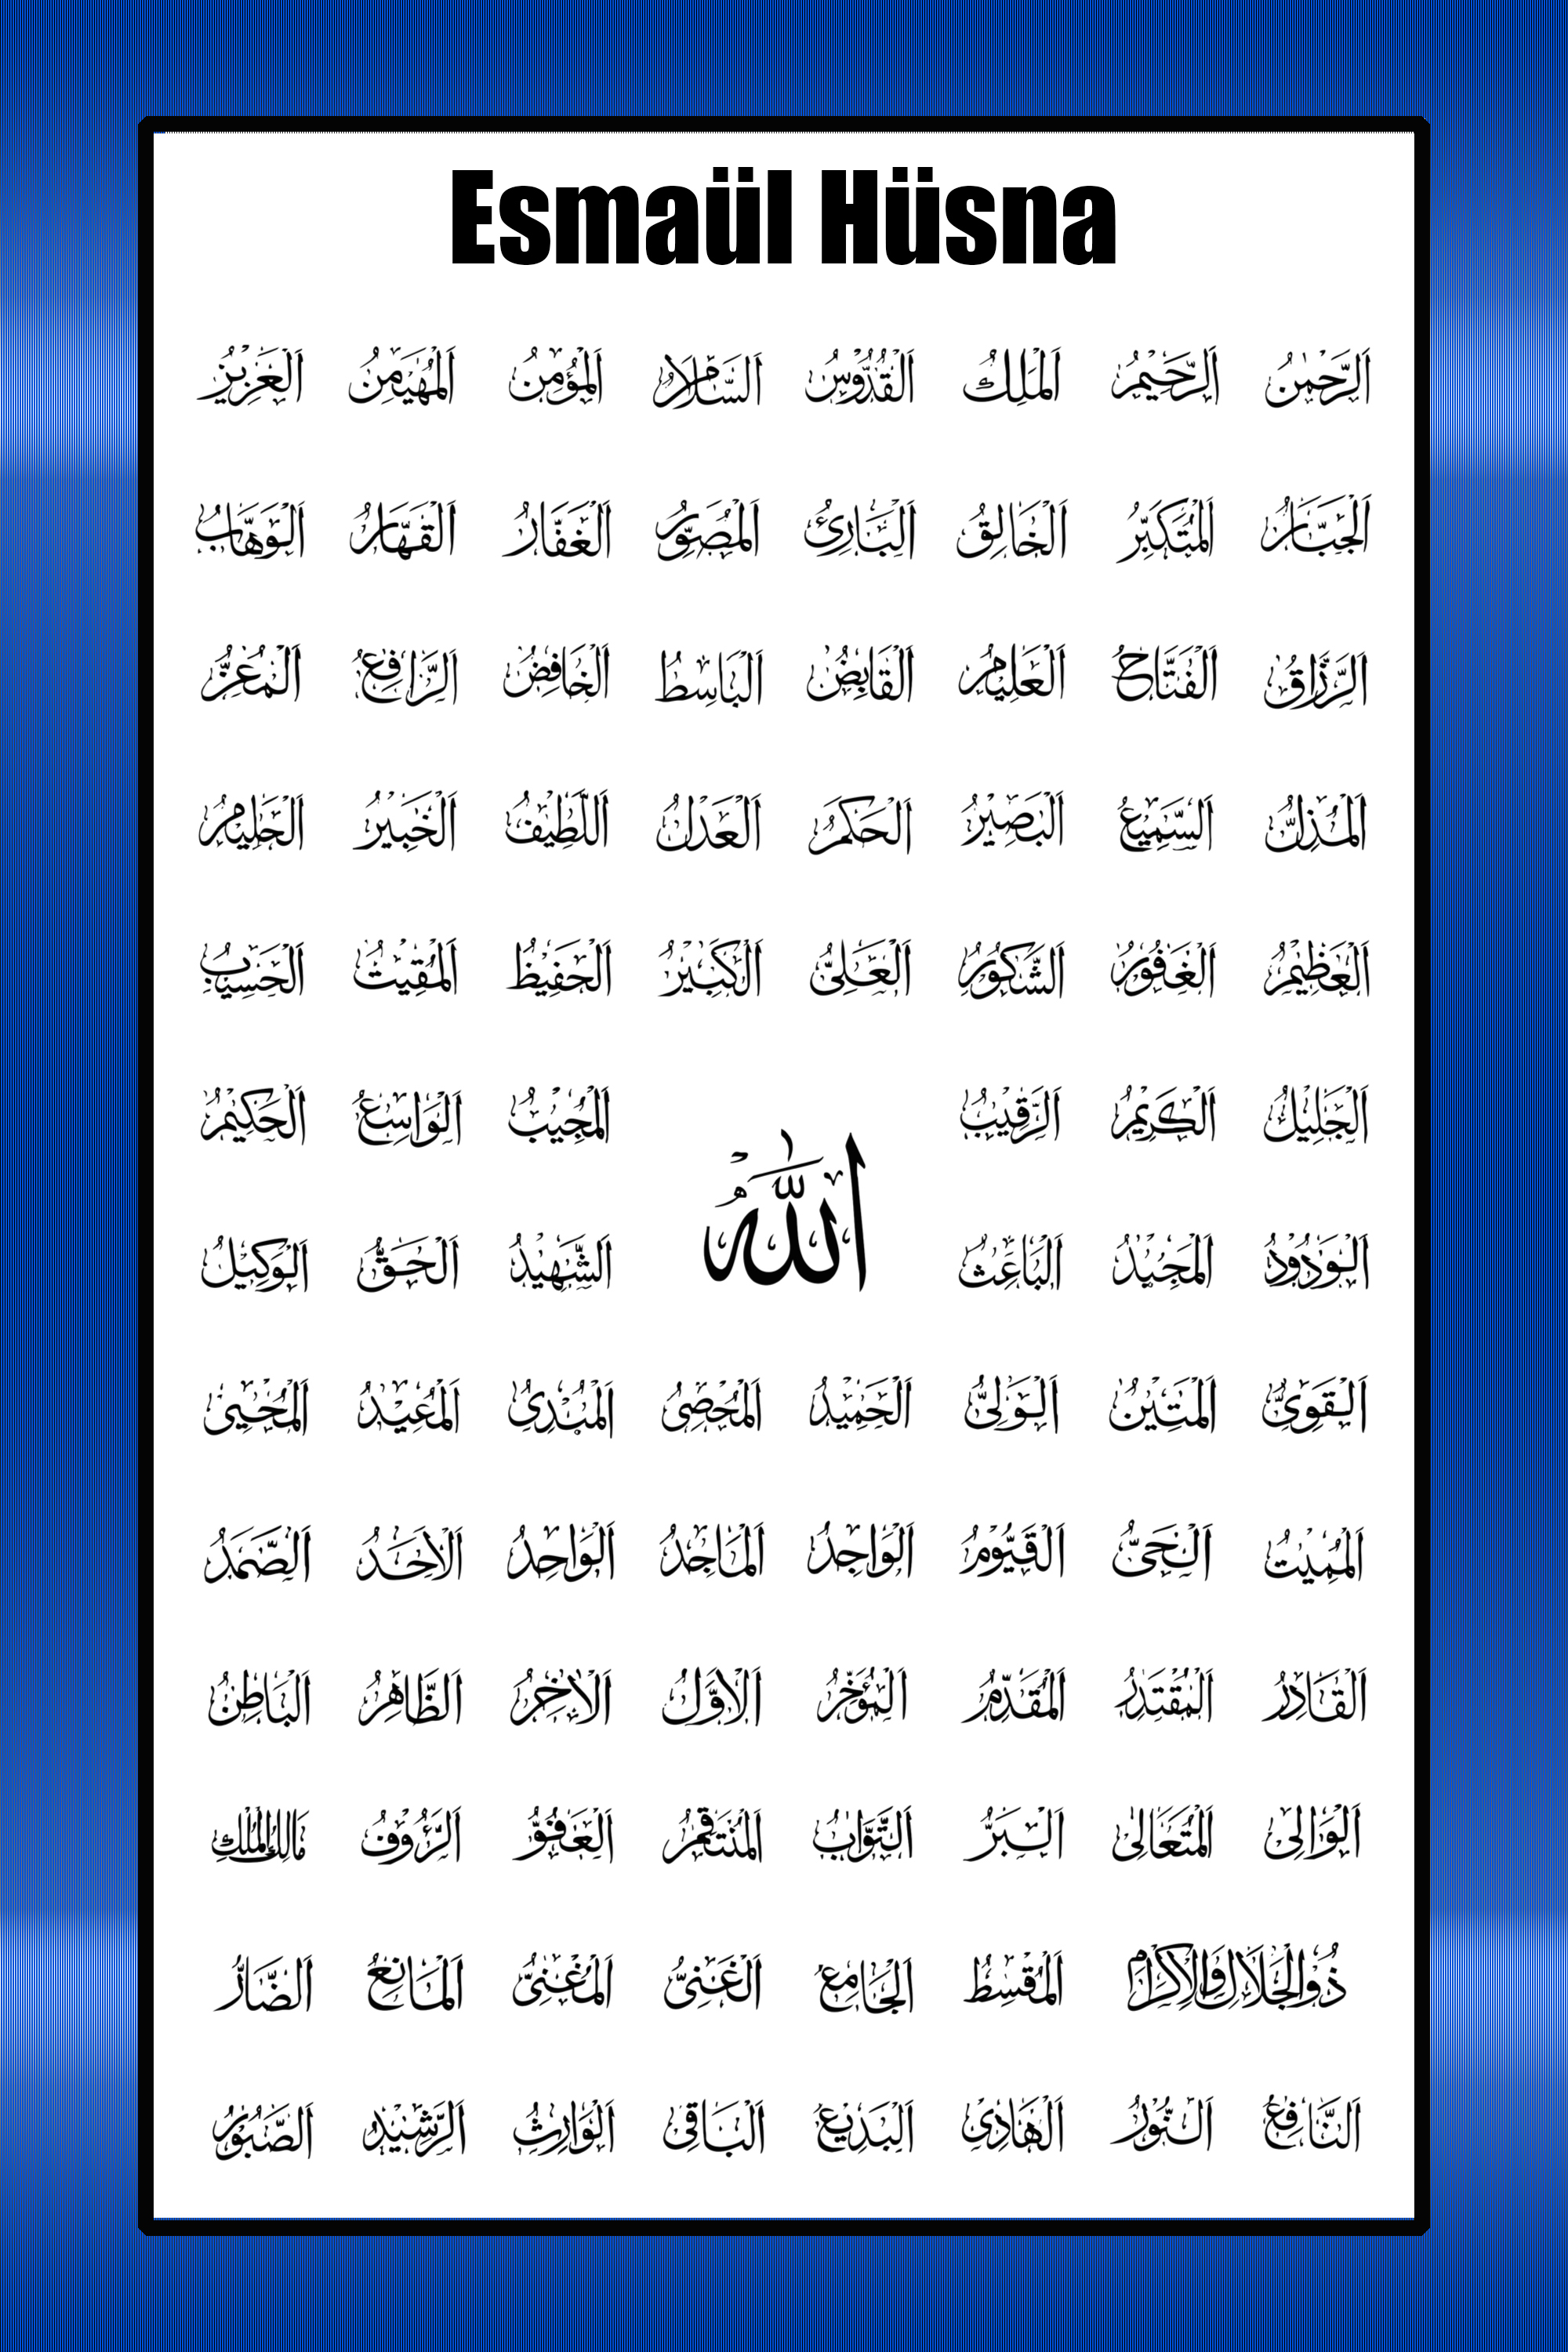 Esmaül Hüsna
اَلرَّحْمٰنُ اَلرَّحِيْمُ اَلْمَلِكُ اَلْقُدُّوْسُ اَلسَّلَامُ اَلْمُؤْمِنُ اَلْمُهَيْمِنُ اَلْعَزِيْزُ
اَلْجَبَّارُ اَلْمُتَكَبِّرُ اَلْخَالِقُ اَلْبَارِئُ اَلْمُصَوِّرُ اَلْغَفَّارُ اَلْقَهَّارُ اَلْوَهَّابُ
اَلرَّزَّاقُ اَلْفَتَّاحُ اَلْعَلِيْمُ اَلْقَابِضُ اَلْبَاسِطُ اَلْخَافِضُ اَلرَّافِعُ اَلْمُعِزُّ
اَلْمُذِلُّ اَلسَّمِيْعُ اَلْبَصِيْرُ اَلْحَكَمُ اَلْعَدْلُ اَللَّطِيْفُ اَلْخَبِيْرُ اَلْحَلِيْمُ
اَلْعَظِيْمُ اَلْغَفُوْرُ اَلشَّكُوْرُ اَلْعَلِىُّ اَلْكَبِيْرُ اَلْحَفِيْظُ اَلْمُقِيْتُ اَلْحَسِيْبُ
اَلْجَلِيْلُ اَلْكَرِيْمُ اَلرَّقِيْبُ اَلْمُجِيْبُ اَلْوَاسِعُ اَلْحَكِيْمُ
اَللّٰهُ
اَلْوَدُوْدُ اَلْمَجِيْدُ اَلْبَاعِثُ اَلشَّهِيْدُ اَلْحَقُّ اَلْوَكِيْلُ
اَلْقَوِىُّ اَلْمَتِيْنُ اَلْوَلِىُّ اَلْحَمِيْدُ اَلْمُحْصِىُ اَلْمُبْدِئُ اَلْمُعِيْدُ اَلْمُحْيِىُ
اَلْمُمِيْتُ اَلْحَىُّ اَلْقَيُّوْمُ اَلْوَاجِدُ اَلْمَاجِدُ اَلْوَاحِدُ اَلْاَحَدُ اَلصَّمَدُ
اَلْقَادِرُ اَلْمُقْتَدِرُ اَلْمُقَدِّمُ اَلْمُؤَخِّرُ اَلْاَوَّلُ اَلْاٰخِرُ اَلظَّاهِرُ اَلْبَاطِنُ
اَلْوَالِى اَلْمُتَعَالِى اَلْبَرُّ اَلتَّوَّابُ اَلْمُنْتَقِمُ اَلْعَفُوُّ اَلرَّؤُوْفُ مَالِكُ الْمُلْكِ
ذُوالْجَلَالِ وَالْاِكْرَامِ اَلْمُقْسِطُ اَلْجَامِعُ اَلْغَنِىُّ اَلْمُغْنِىُّ اَلْمَانِعُ اَلضَّارُّ
اَلنَّافِعُ اَلنُّوْرُ اَلْهَادِى اَلْبَدِيْعُ اَلْبَاقِى اَلْوَارِثُ اَلرَّشِيْدُ اَلصَّبُوْرُ